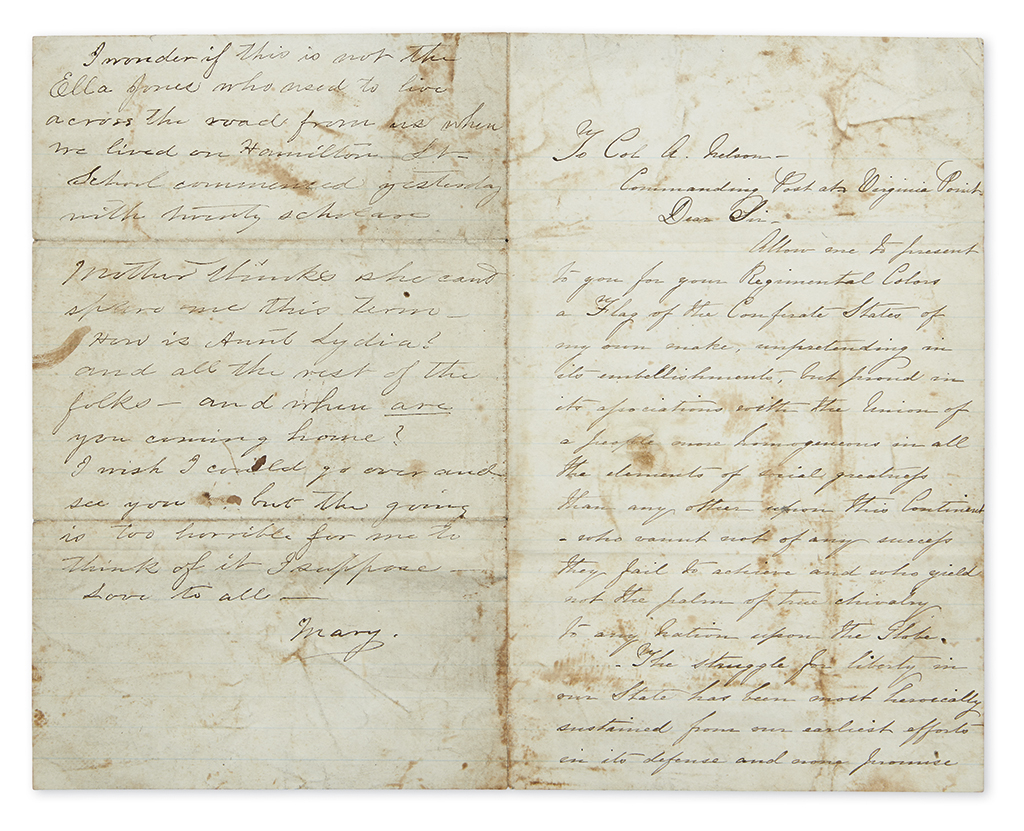 I wonder if this is not the
Ella Jones who used to live
across the road from us when
we lived on Hamilton St-
School commenced yesterday
with twenty scholars
Mother thinks she can't
spare me this term-
How is Aunt Lydia?
and all the rest of the
folks - and when are
you coming home?
I wish I could go over and
see you but the going
is too horrible for me to
think of it I suppose -
Love to all -
Mary.
To Col A. Nelson -
Commanding Post at Virginia Point.
Dear Sir -
Allow me to present
to you for your Regimental Colors
a Flag of the Confirate States of
my own make, unpretending in
its embellishments, but proud in
its asociations with the Union of
a people more homogeneous in all
the elements of social greatness -
than any other upon this Continent
- who vaunt not of any success
they fail to achieve and who yield
not the palm of true chivalry
to any Nation upon the Globe.
- The struggle for liberty in
our State has been most heroically
sustained from our earliest efforts
in its defense and none promise